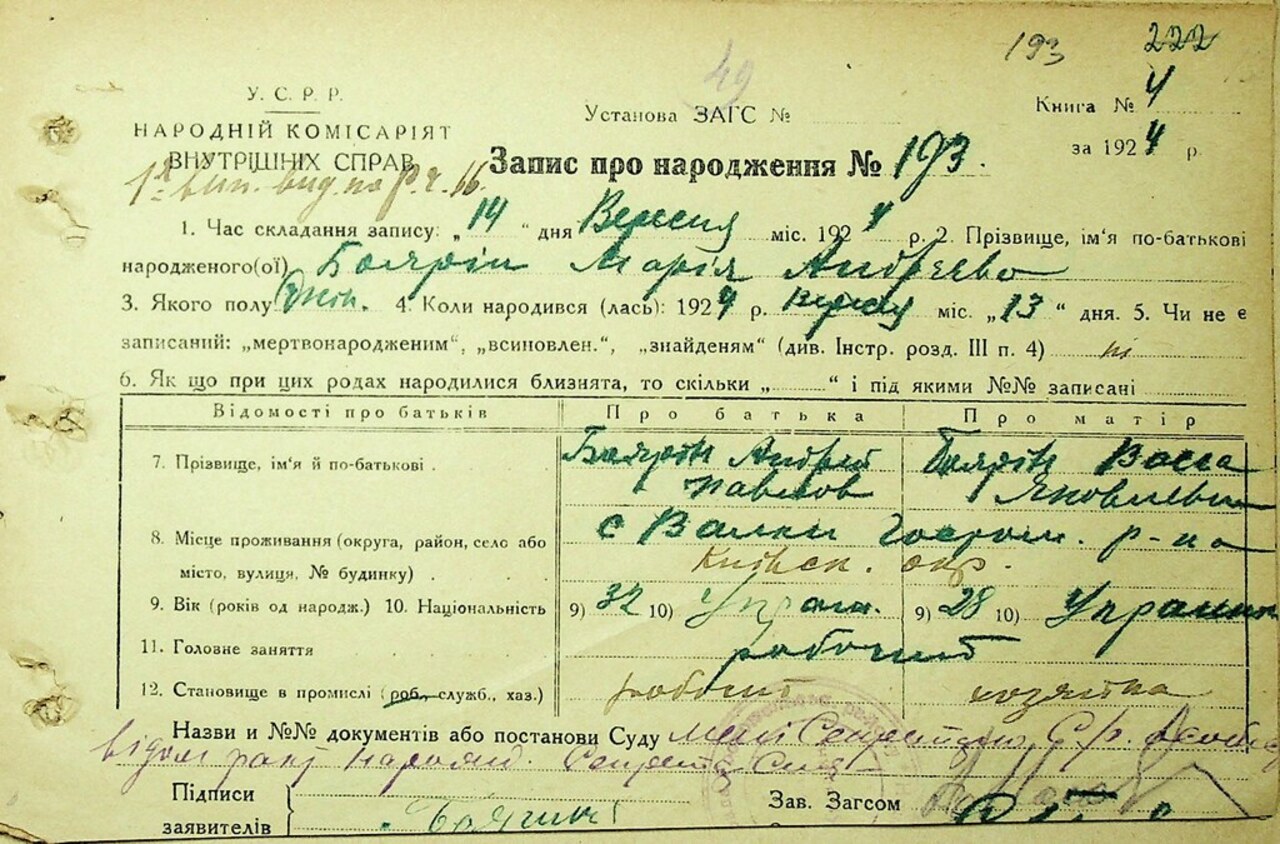 193 222
49
У. С. Р. Р.
Установа ЗАГС №
Книга № 4
НАРОДНІЙ КОМІСАРІЯТ
ВНУТРІШНІХ СПРАВ
за 1924 р.
Запис про народження № 193.
1. Час складання запису: „14“ дня Вересня міс. 1924 р. 2. Прізвище, ім'я по-батькові
народженого(ої) Боярін Марія Андреево
3. Якого полу жін. 4. Коли народився (лась): 1924 р. Вересня міс. „13“ дня. 5. Чи не є
записаний: „мертвонародженим“, „всиновлен.“, „знайденям“ (див. Інстр. розд. III п. 4) ні
6. Як що при цих родах народилися близнята, то скільки „ “ і під якими №№ записані
Відомості про батьків Про батька Про матір
7. Прізвище, ім'я й по-батькові . Боярін Андрей Боярін Васса
Павлов Яковлевна
8. Місце проживання (округа, район, село або с Валки Гостом. р-на
місто, вулиця, № будинку) . . Київск. окр.
9. Вік (років од народж.) 10. Національність 9) 32 10) Украін. 9) 28 10)
11. Головне заняття рабочий
12. Становище в промислі (роб., служб., хаз.) рабочий хозяйка
Назви и №№ документів або постанови Суду
Підписи
заявителів
Зав. Загсом